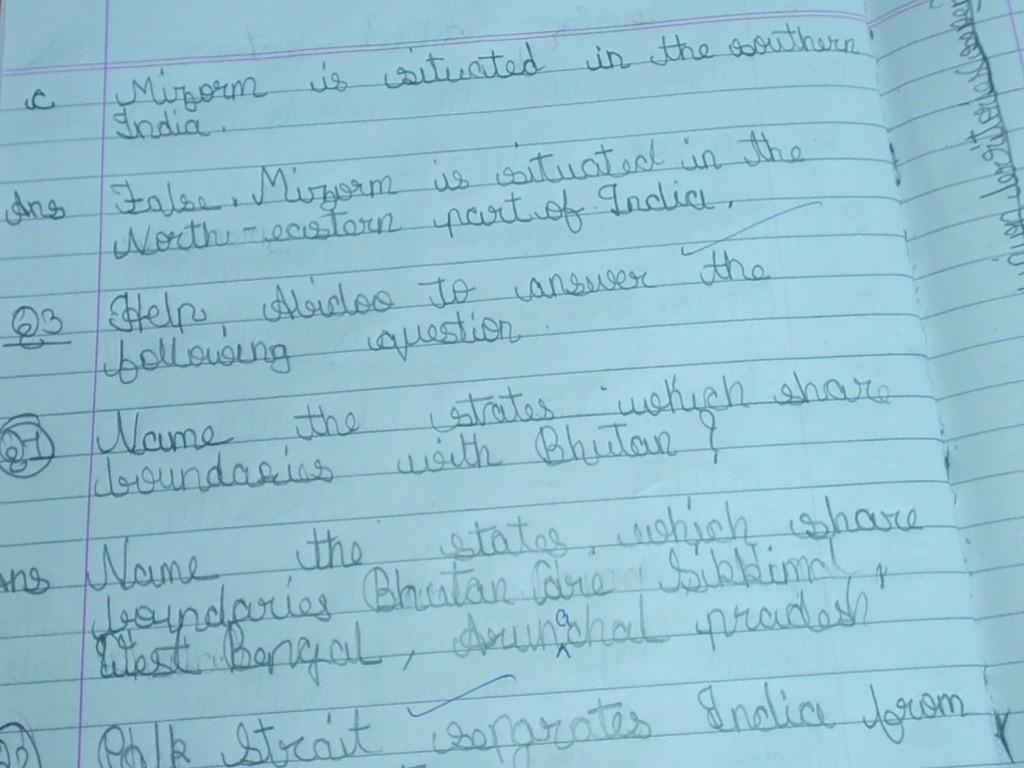 c Mizorm is situated in the southern
India.
Ans False, Mizorm is situated in the
North-eastorn part of India.
Q3 Help to answer the
following question.
Q1 Name the states which share
boundaries with Bhutan?
Ans Name the states, which share
boundaries Bhutan are
West Bengal, Arunachal pradesh
strait separates India from